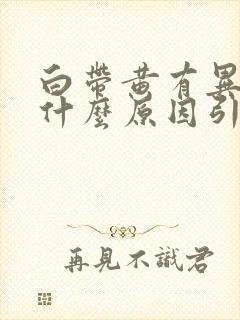 白帶黃有異
什麼原因引
再見不識君